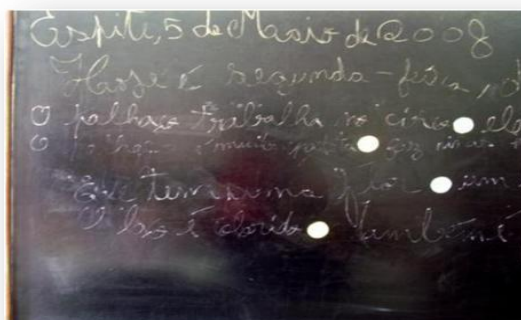 Espite, 5 de Maio de 2008
Hoje é segunda-feira,
O palhaço trabalha no circo ele
O palhaço é muito faz rir
Ele tem uma flor um
O laço é colorido Também é